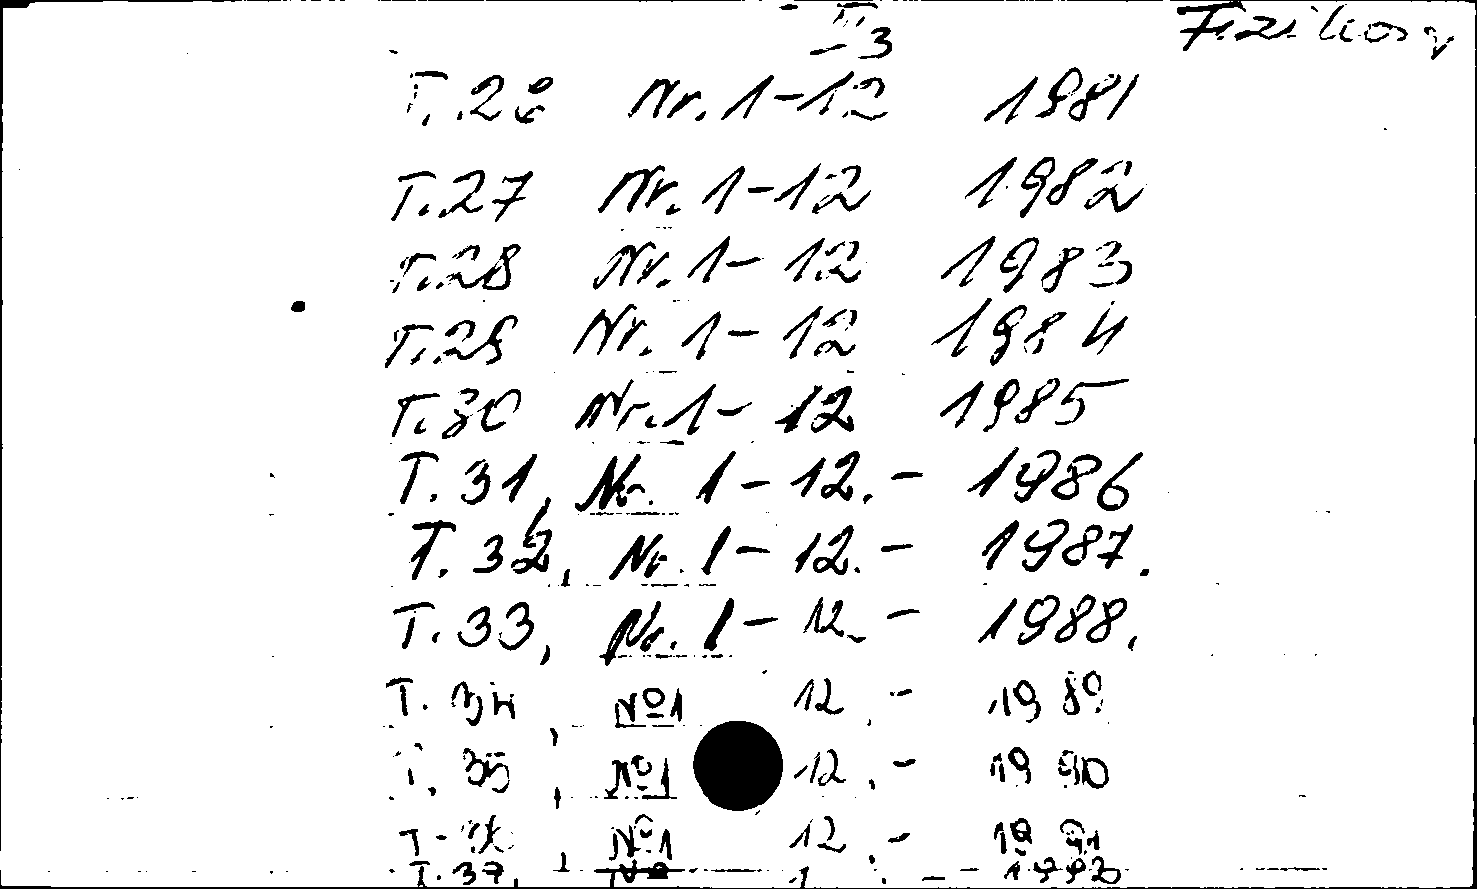 - 3
T. 26 Nr. 1-12 1981
T. 27 Nr. 1-12 1982
T. 28 Nr. 1-12 1983
T. 29 Nr. 1-12 1984
T. 30 Nr. 1-12 1985
T. 31, Nr. 1-12. - 1986
T. 32, Nr. 1-12. - 1987.
T. 33, Nr. 1-12. - 1988.
T. 34, №1 12. - 1989
T. 35, №1 12. - 1990
T. 36, №1 12. - 1991
T. 37, № 1 - 1992